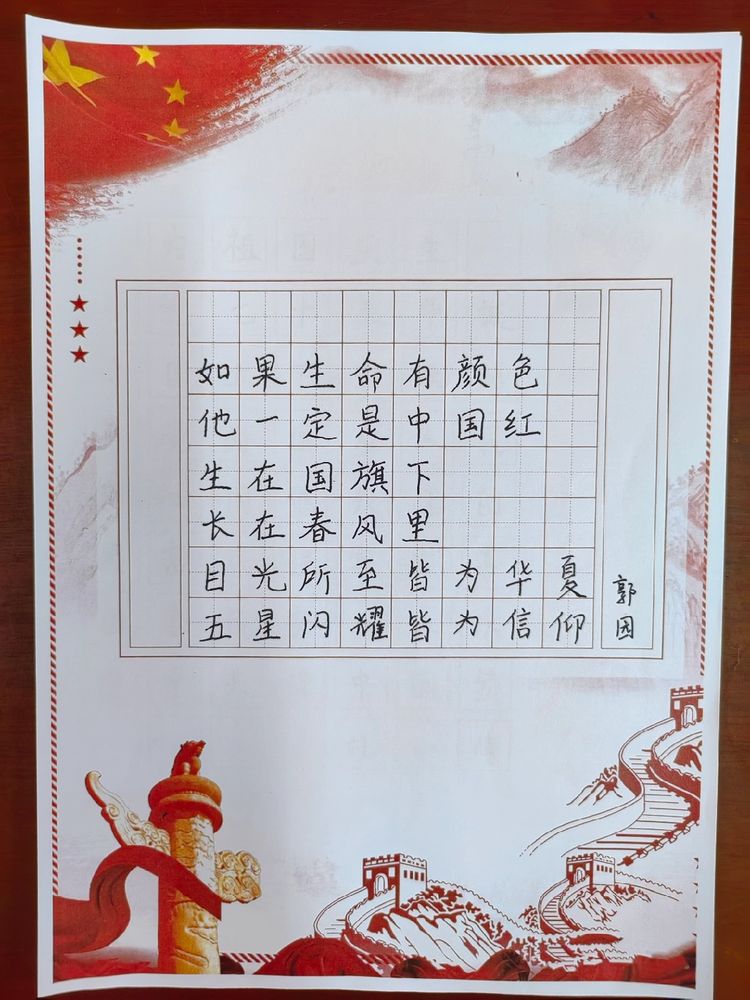 如果生命有颜色
他一定是中国红
生在国旗下
长在春风里
目光所至皆为华夏
五星闪耀皆为信仰
郭园